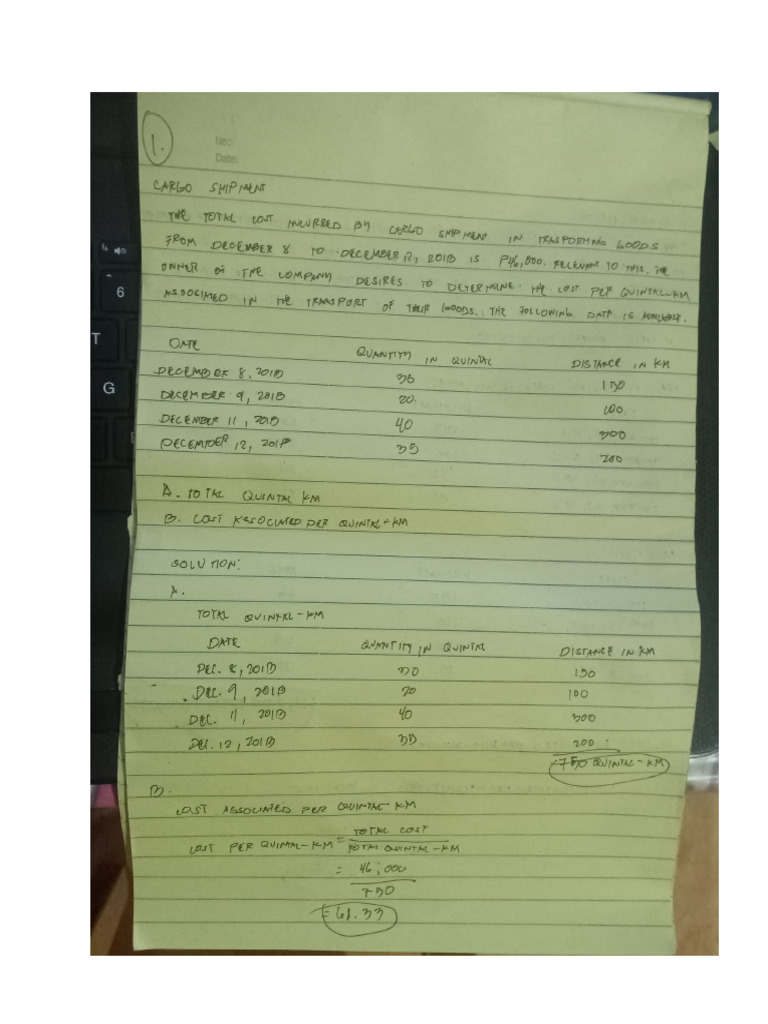 1.
No.:
Date:
CARGO SHIPMENT
THE TOTAL COST INCURRED BY CARGO SHIPMENT IN TRASPORMING GOODS
FROM DECEMBER 8 TO DECEMBER 12, 2018 IS P46,000. RELEVANT TO THIS, THE
OWNER OF THE COMPANY DESIRES TO DETERMINE THE COST PER QUINTAL-KM
ASSOCIATED IN THE TRANSPORT OF THEIR GOODS. THE FOLLOWING DATA IS AVAILABLE.
DATE QUANTITY IN QUINTAL DISTANCE IN KM
DECEMBER 8, 2018 30 150
DECEMBER 9, 2018 20 100
DECEMBER 11, 2018 40 300
DECEMBER 12, 2018 35 200
A. TOTAL QUINTAL KM
B. COST ASSOCIATED PER QUINTAL-KM
SOLUTION:
A.
TOTAL QUINTAL-KM
DATE QUANTITY IN QUINTAL DISTANCE IN KM
DEC. 8, 2018 30 150
DEC. 9, 2018 20 100
DEC. 11, 2018 40 300
DEC. 12, 2018 35 200
750 QUINTAL-KM
B.
COST ASSOCIATED PER QUINTAL-KM
COST PER QUINTAL-KM = TOTAL COST
TOTAL QUINTAL-KM
= 46,000
750
= 61.33
6
T
G